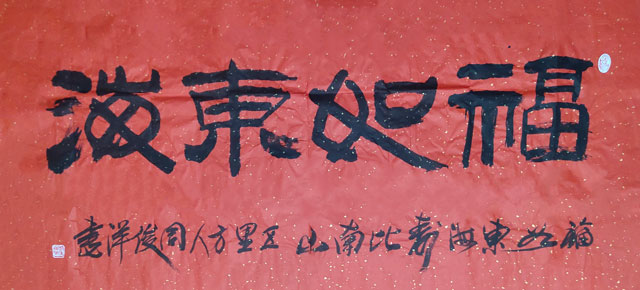 福如東海
福如東海壽比南山 里方人同俊洋書